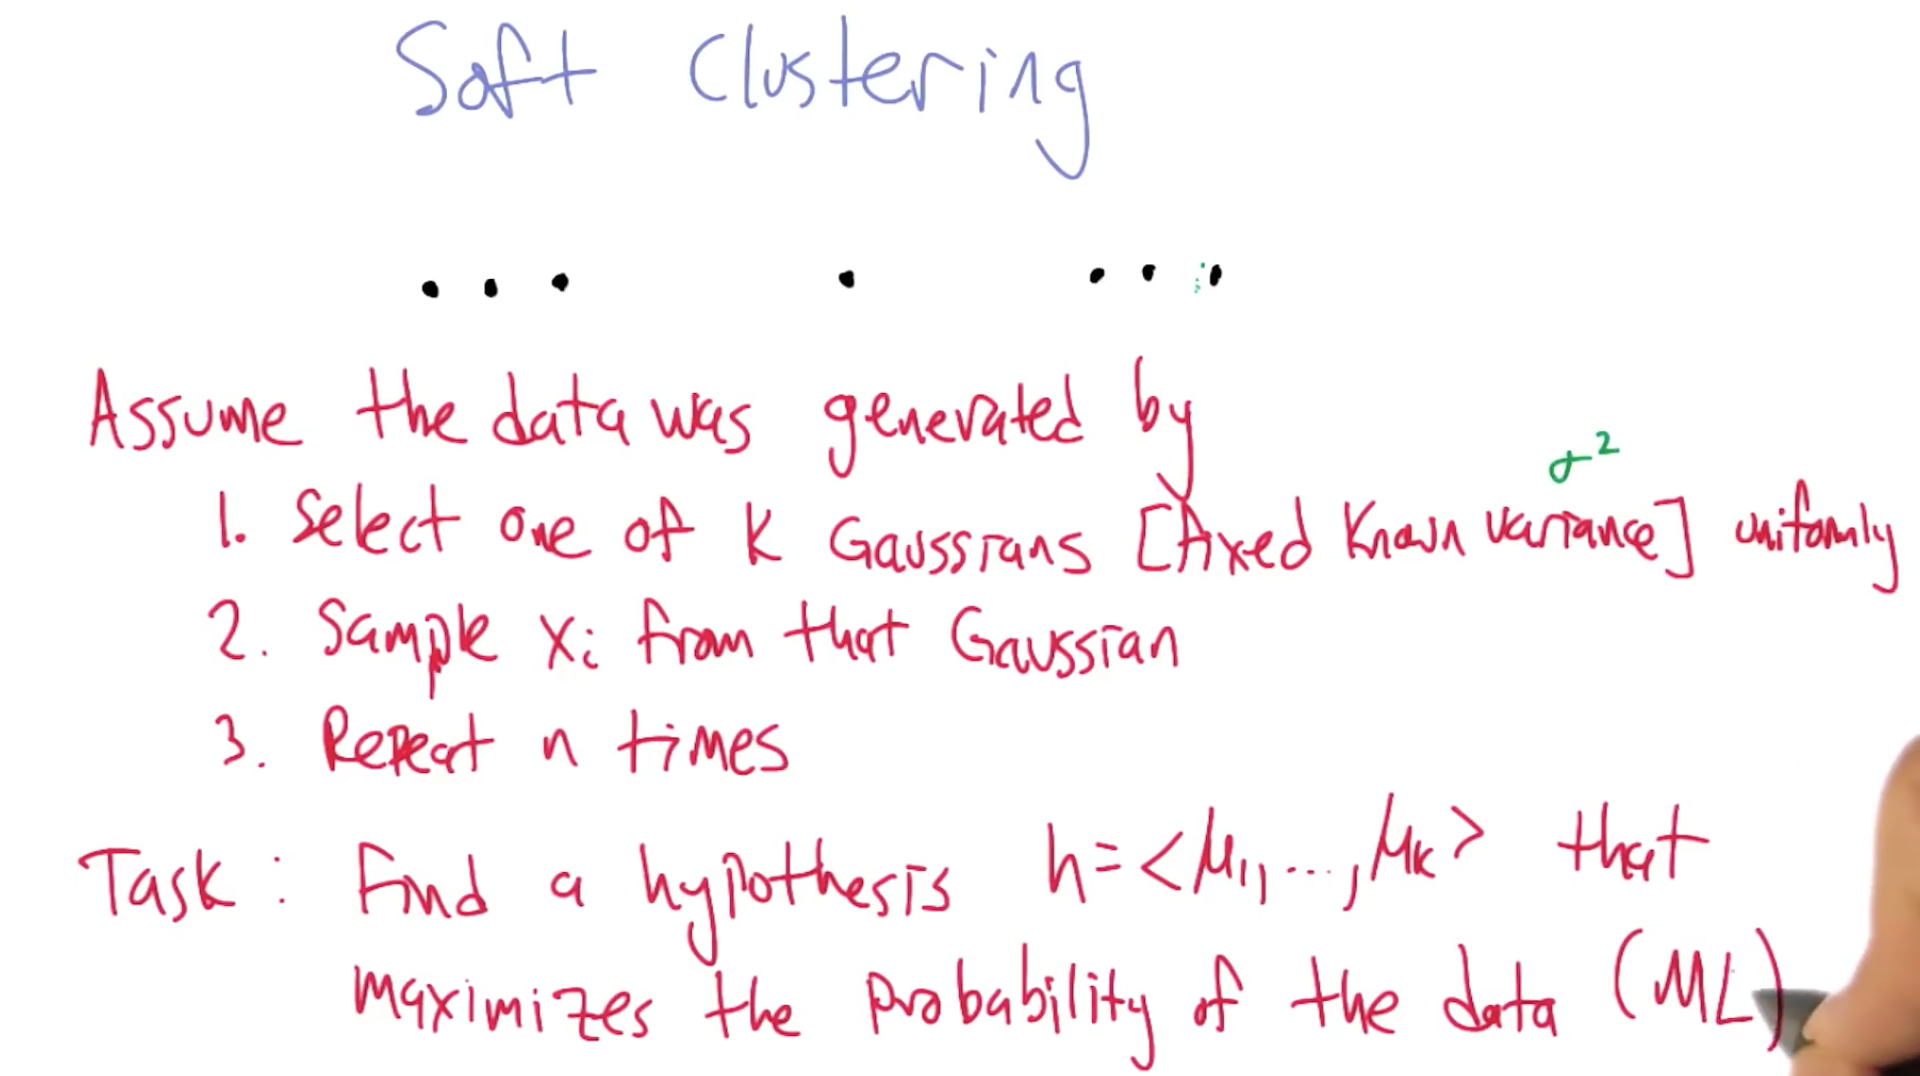 Soft Clustering
Assume the data was generated by
σ²
1. Select one of K Gaussians [Fixed known variance] uniformly
2. Sample xᵢ from that Gaussian
3. Repeat n times
Task: Find a hypothesis h = <μ₁, ..., μₖ> that
maximizes the probability of the data (ML)